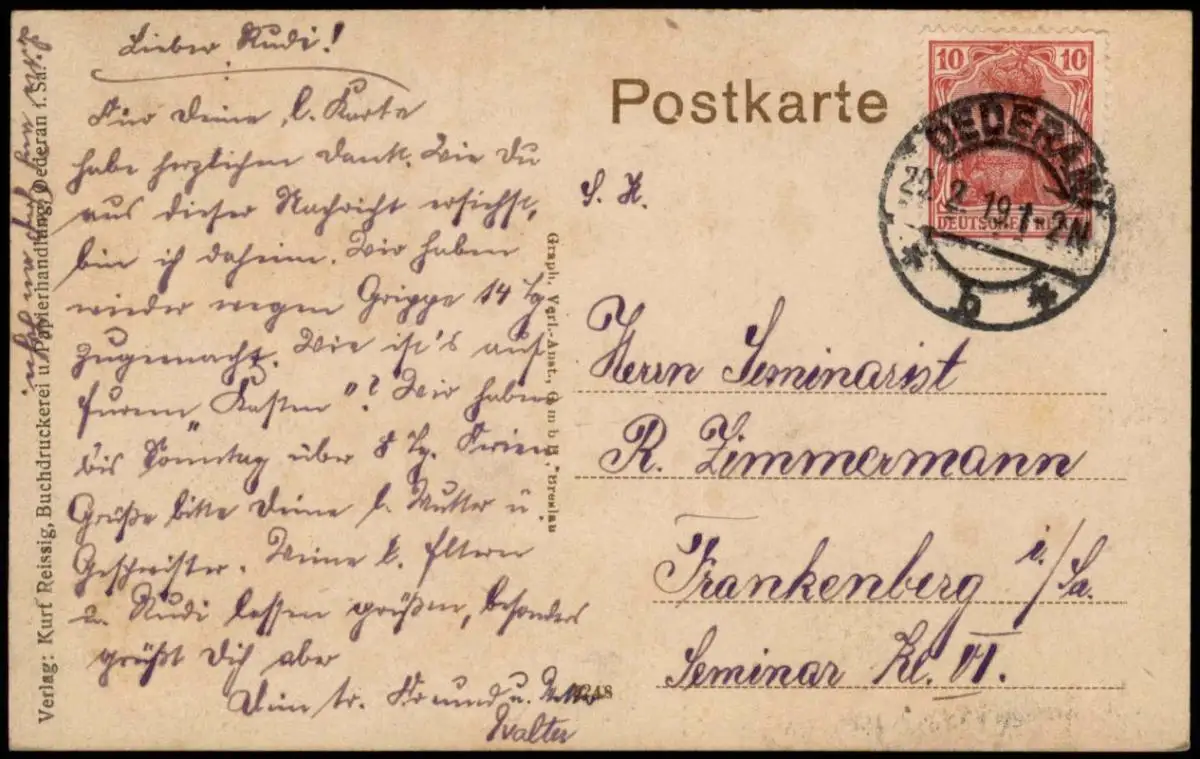 Lieber Rudi!
Für Deine l. Karte
habe herzlichen Dank. Wie Du
aus dieser Nachricht ersiehst,
bin ich daheim. Wir haben
wieder wegen Grippe 14 Tg.
zugemacht. Wie ist's auf
Eurem „Kasten“? Wir haben
bis Sonntag über 8 Tg. Ferien.
Grüße bitte Deine l. Mutter u.
Geschwister. Meine l. Eltern
u. Rudi lassen grüßen, besonders
grüßt Dich aber
Dein tr. Freund u. Vetter
Walter
Verlag: Kurt Reissig, Buchdruckerei u. Papierhandlung, Oederan i. Sa.
Graph. Verl.-Anst., G m b H, Breslau
248
Postkarte
S. H.
10 10
DEUTSCHES REICH
OEDERAN
22. 2. 19. 1-2N
* b *
Herrn Seminarist
R. Zimmermann
Frankenberg i./Sa.
Seminar Kl. VI.